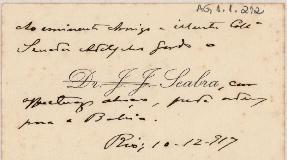 AG, 1.1.292
Ao eminente Amigo e illustre Coll.
Senador Adolpho Gordo o
Dr. J. J. Seabra, com
affectuoso abraço, pede
para a Bahia.
Rio, 10-12-917